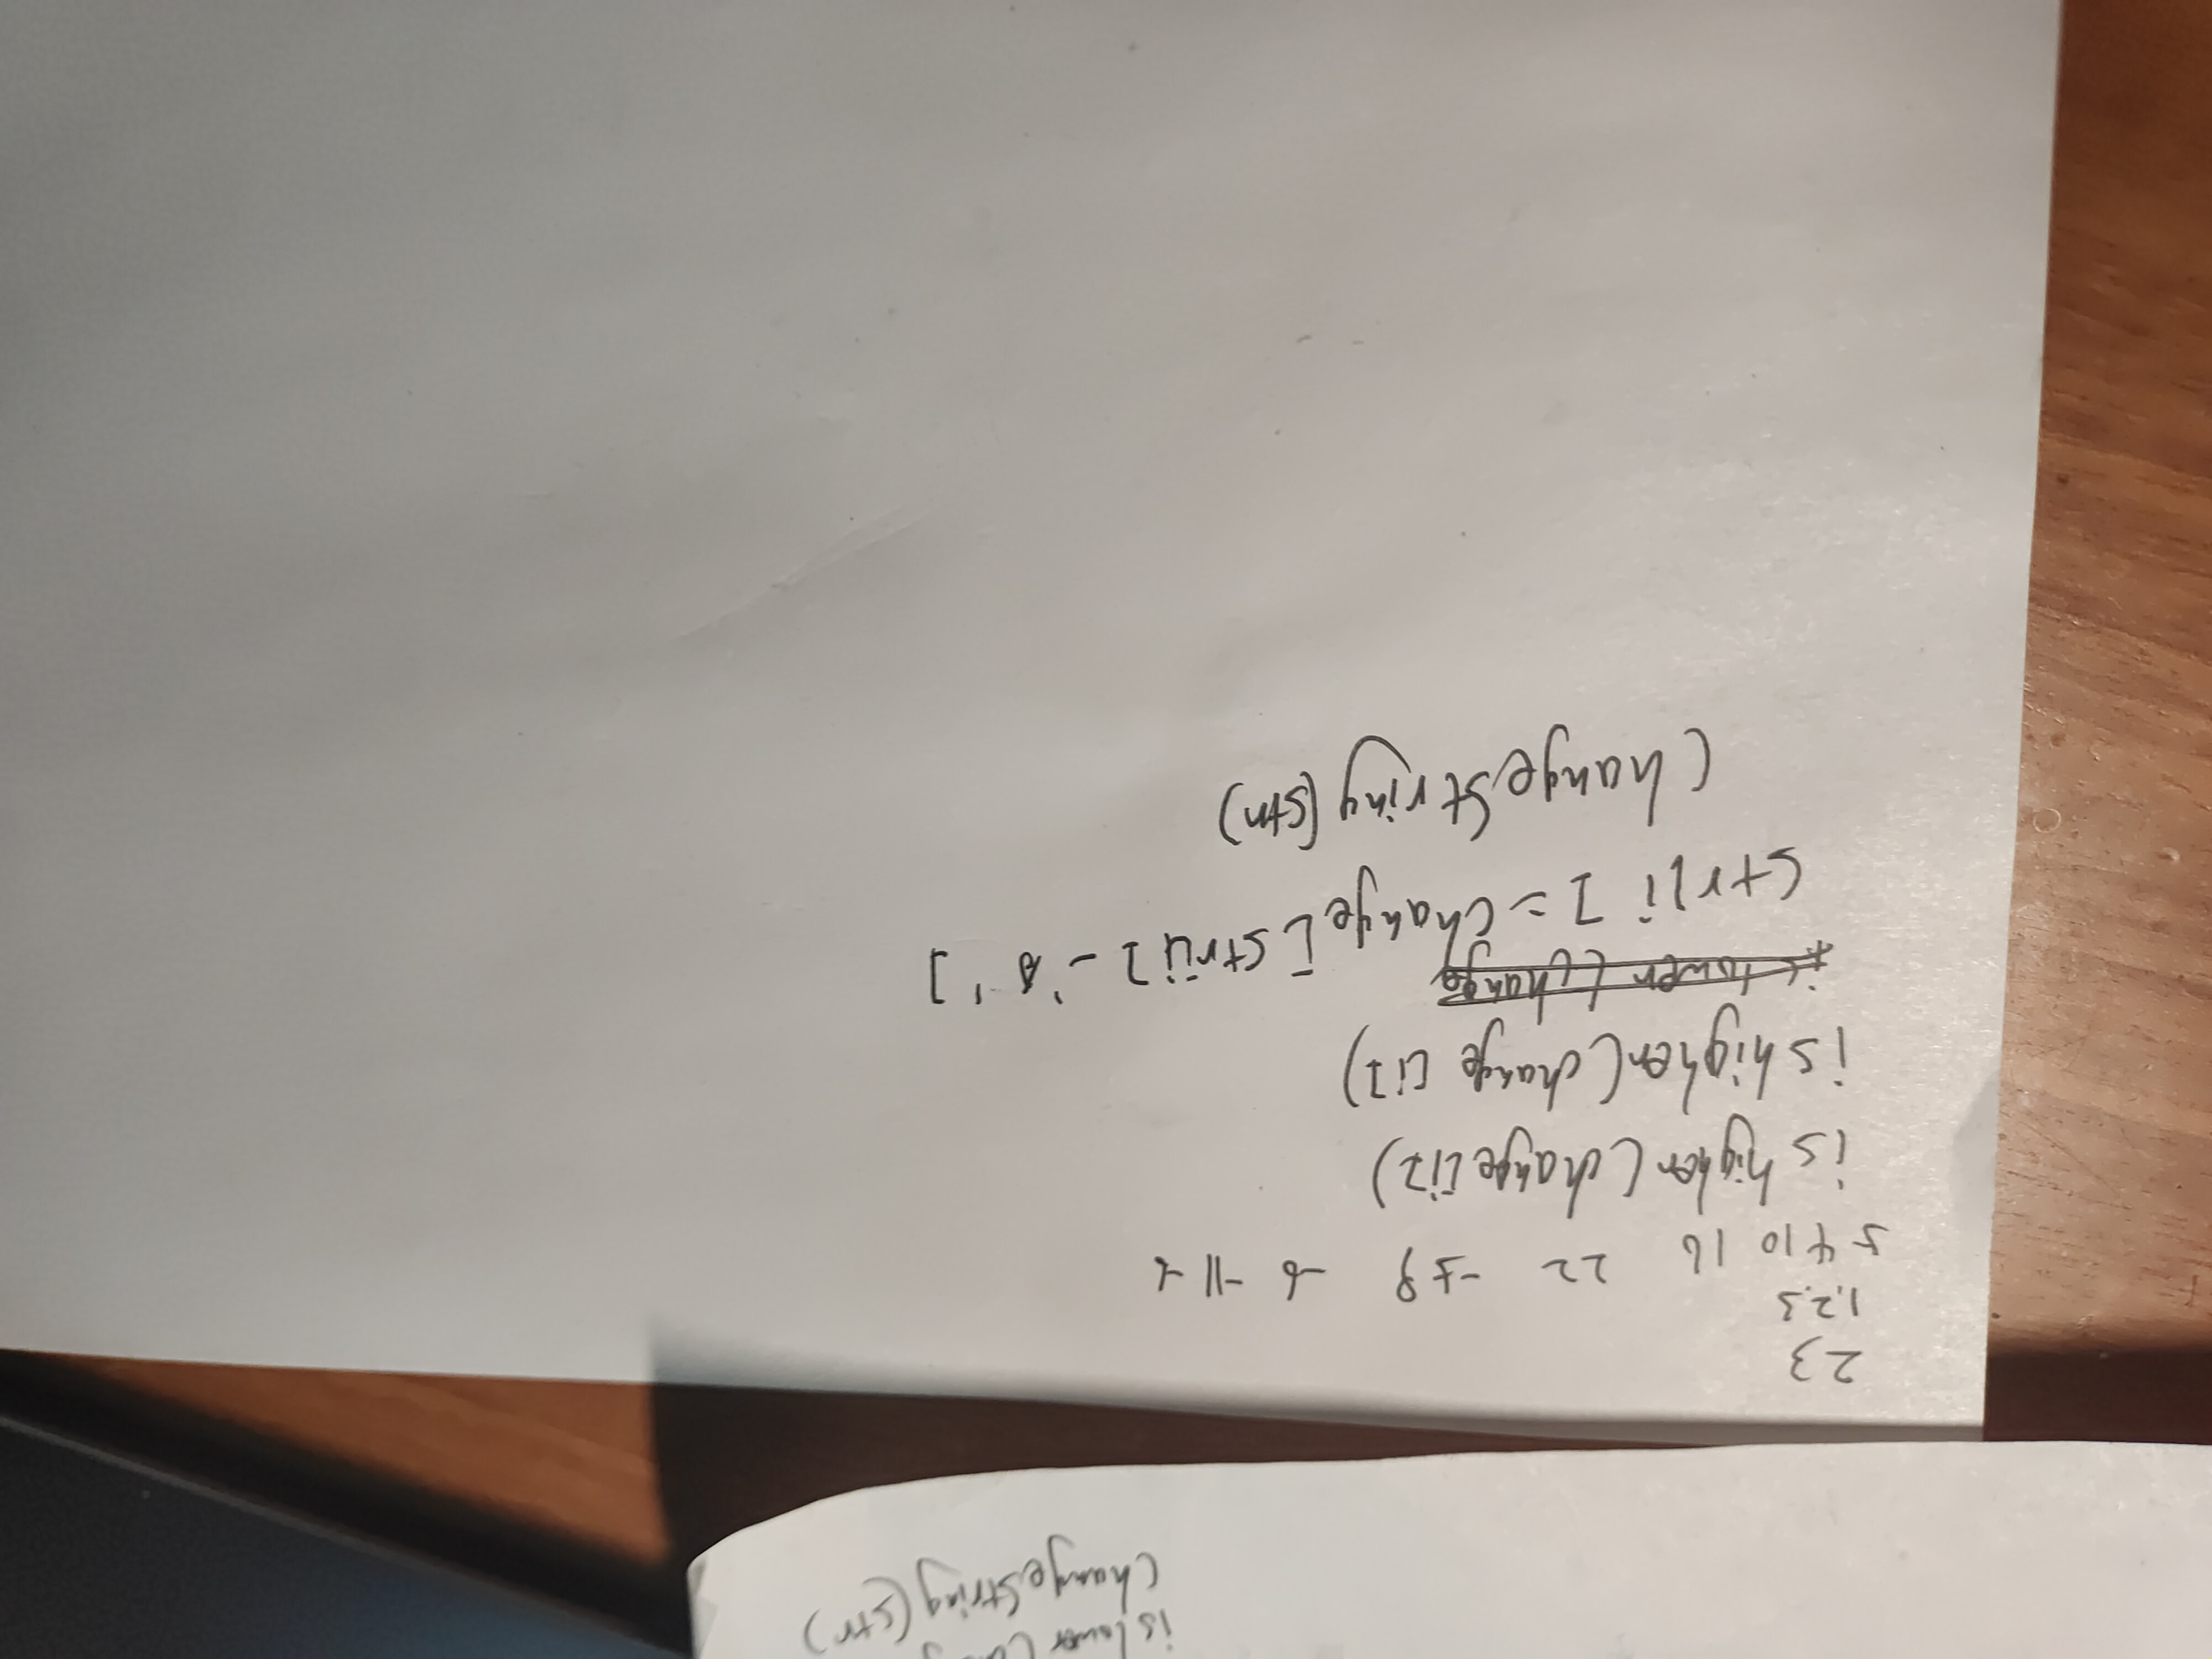 is lower (
changeString(str)
23
1.2.3
5 4 10 16 22 -59 -6 -11
is higher(change[i])
is higher(change [i])
is lower (change
str[i] = change[str[i] - 'A']
changeString(str)